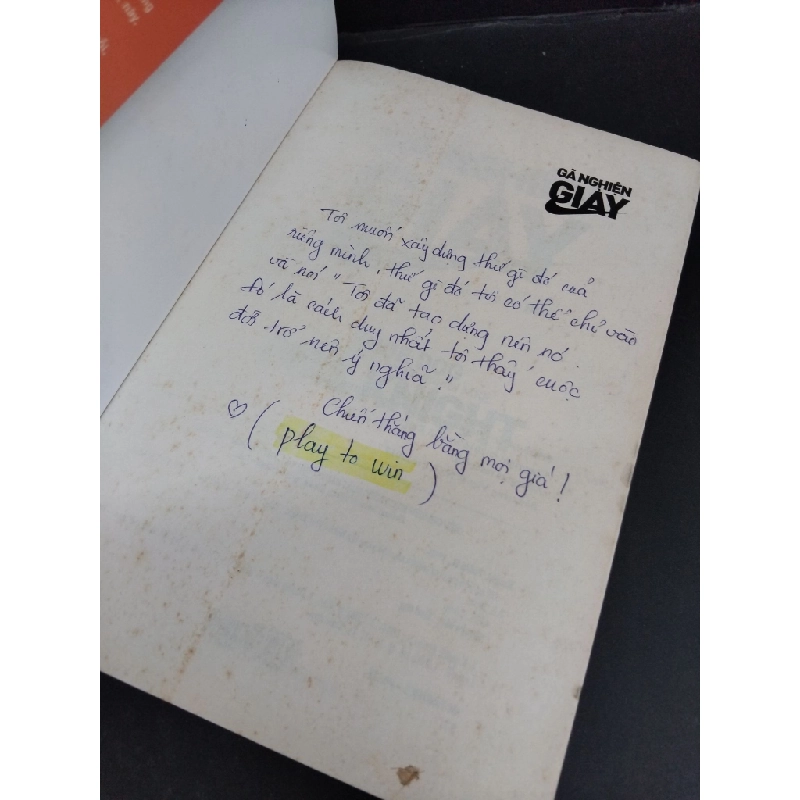 GÃ NGHIỆN
GIÀY
Tôi muốn xây dựng thứ gì đó của
riêng mình, thứ gì đó tôi có thể chỉ vào
và nói "Tôi đã tạo dựng nên nó.
Đó là cách duy nhất tôi thấy cuộc
đời trở nên ý nghĩa".
Chiến thắng bằng mọi giá!
(play to win)